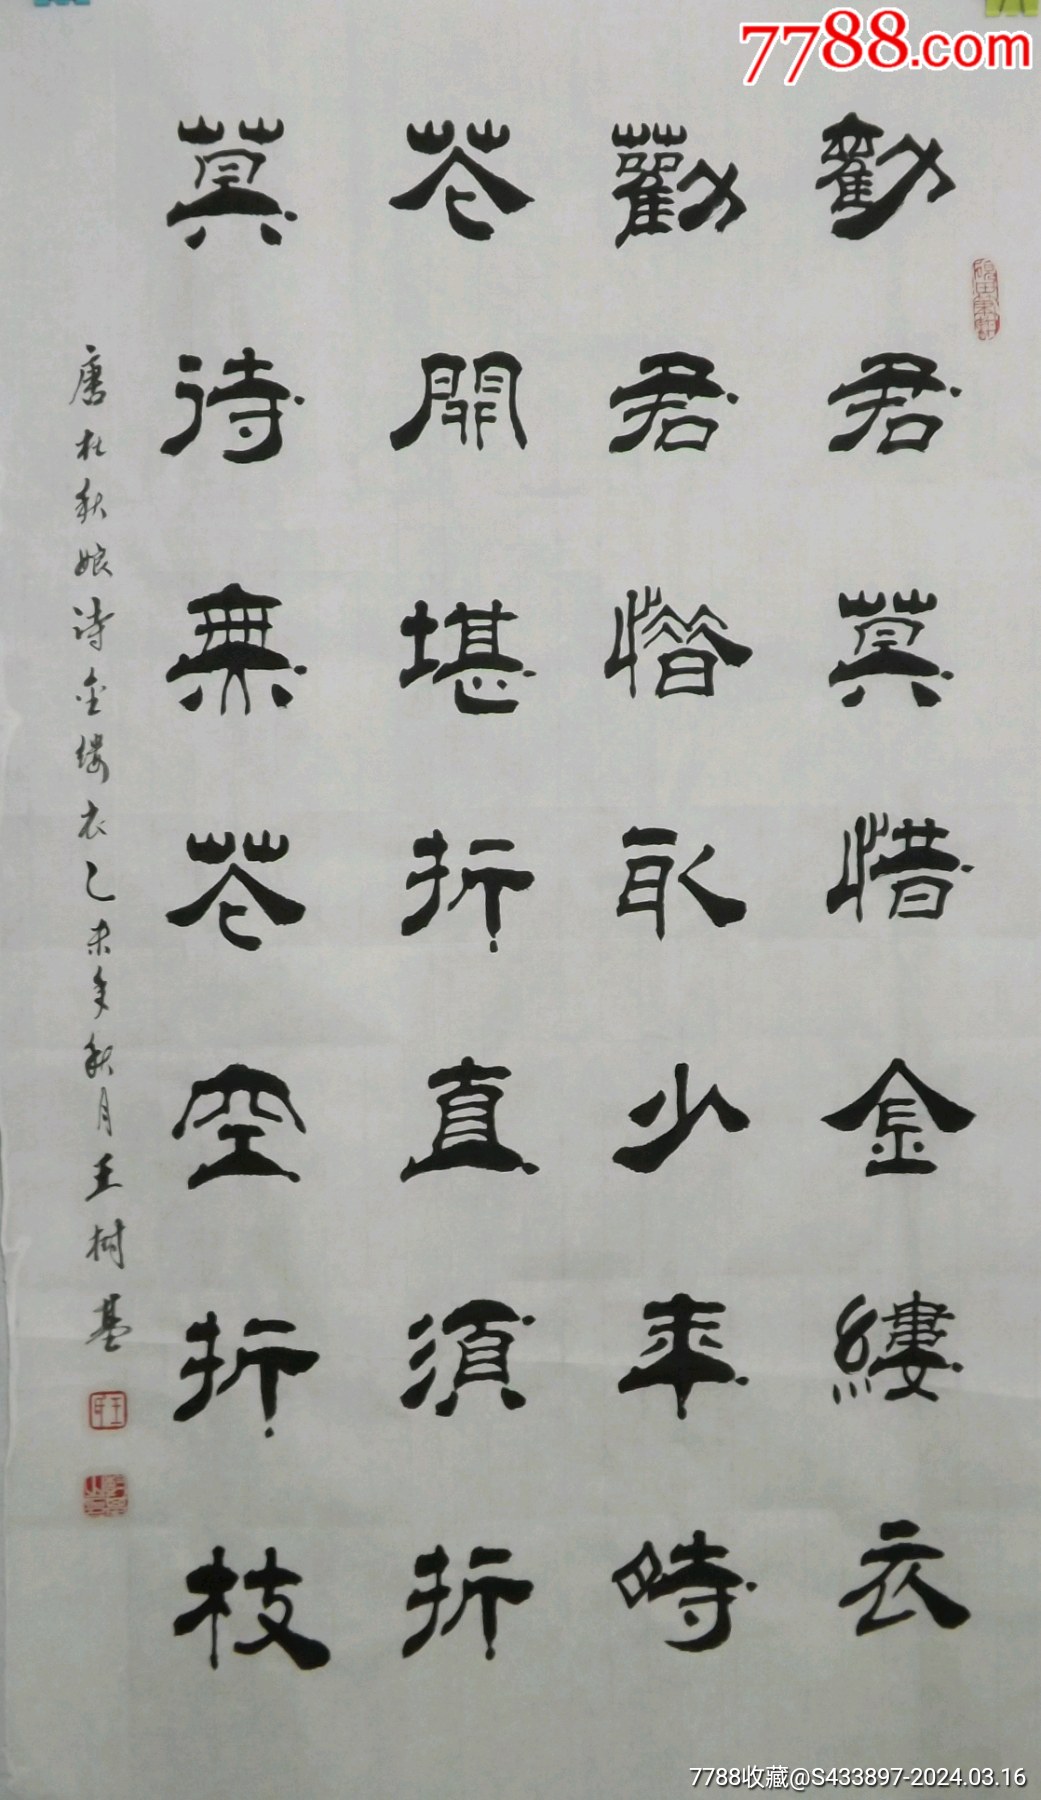 7788.com
勸君莫惜金縷衣
勸君惜取少年時
花開堪折直須折
莫待無花空折枝
唐杜秋娘诗金缕衣乙未年秋月王树基
7788收藏@S433897-2024.03.16